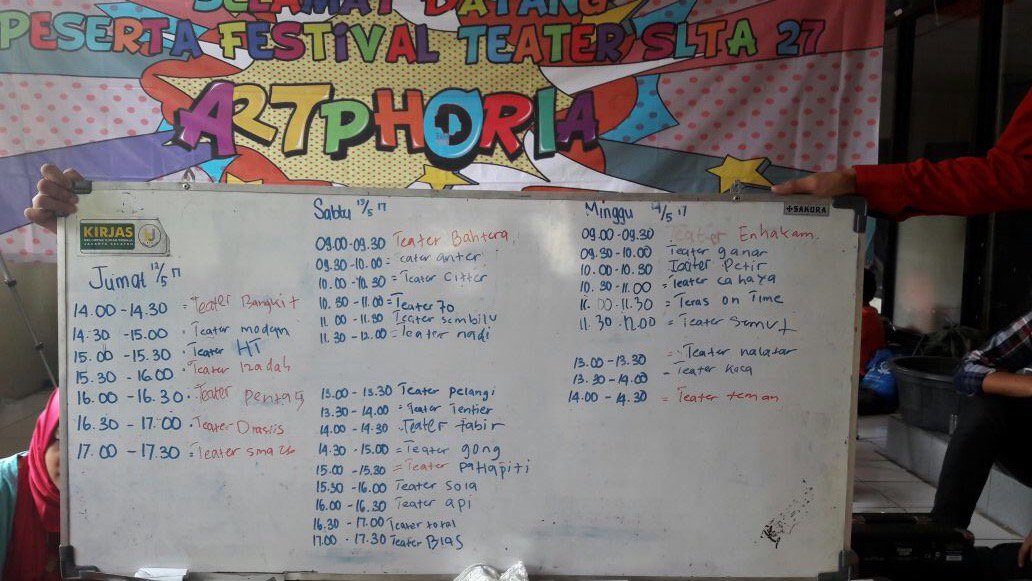 SELAMAT DATANG
PESERTA FESTIVAL TEATER SLTA 27
ARTPHORIA
KIRJAS
SAKURA
Jumat 12/5 17
14.00 - 14.30 = Teater Bangkit
14.30 - 15.00 . Teater modern
15.00 - 15.30 . Teater HT
15.30 - 16.00 . Teater Izadah
16.00 - 16.30 . Teater pentas
16.30 - 17.00 . Teater
17.00 - 17.30 = Teater
Sabtu 13/5 17
09.00 - 09.30 Teater Bahtera
09.30 - 10.00 = Teater anter
10.00 - 10.30 = Teater Citter
10.30 - 11.00 = Teater 70
11.00 - 11.30 Teater sembilu
11.30 - 12.00 = Teater nadi
13.00 - 13.30 Teater pelangi
13.30 - 14.00 = Teater Tentier
14.00 - 14.30 . Teater tabir
14.30 - 15.00 = Teater gong
15.00 - 15.30 = Teater
15.30 - 16.00 Teater Sola
16.00 - 16.30 Teater api
16.30 - 17.00 Teater total
17.00 - 17.30 Teater BIAS
Minggu 14/5 17
09.00 - 09.30 Teater Enhakam
09.30 - 10.00 Teater ganar
10.00 - 10.30 Teater Petir
10.30 - 11.00 = Teater cahaya
11.00 - 11.30 = Teras on Time
11.30 12.00 = Teater Semut
13.00 - 13.30 = Teater nalatar
13.30 - 14.00 - Teater kaca
14.00 - 14.30 = Teater teman